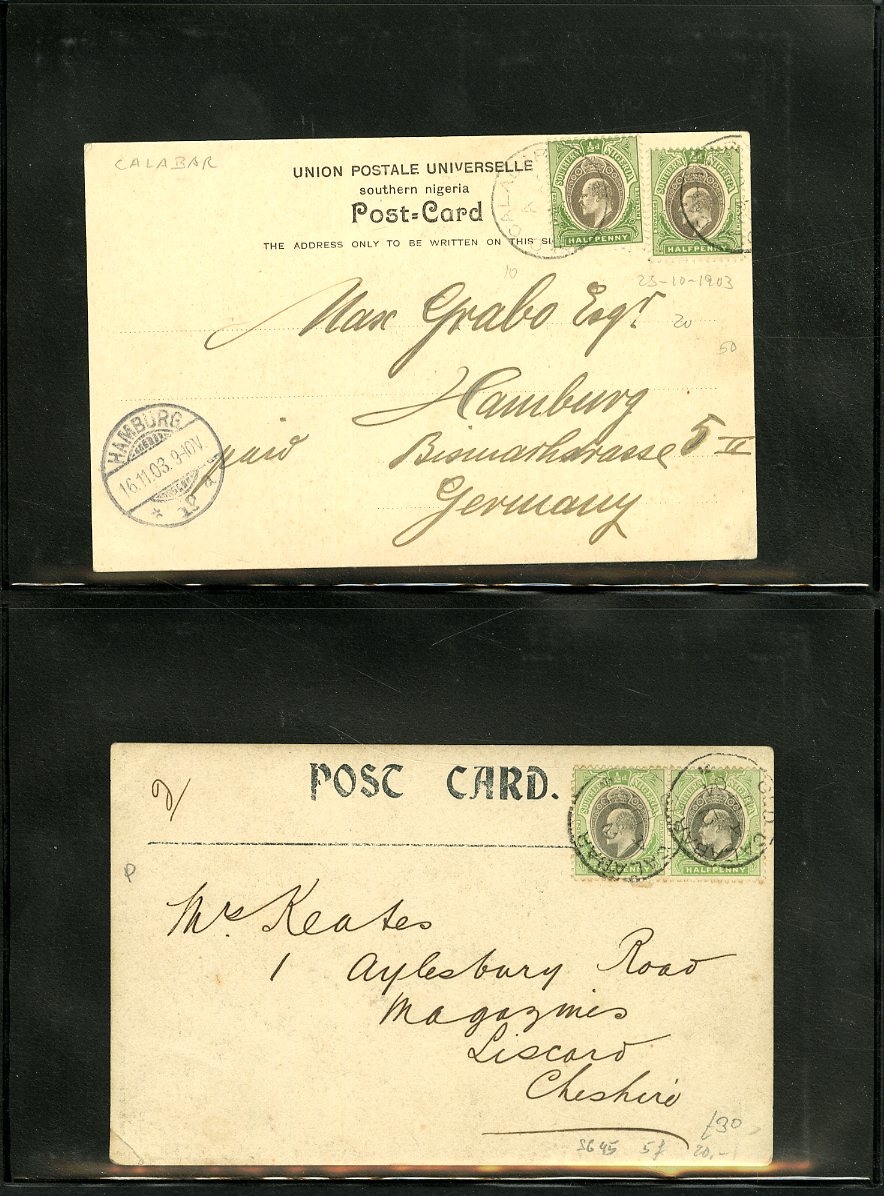 CALABAR
UNION POSTALE UNIVERSELLE
southern nigeria
Post=Card
THE ADDRESS ONLY TO BE WRITTEN ON THIS SI
CALABAR
½d
SOUTHERN NIGERIA
HALFPENNY
½d
SOUTHERN NIGERIA
HALFPENNY
10
23-10-1903
Max Grabo Esqr
20
50
Hamburg
paid Bismarkstrasse 5 II
Germany
HAMBURG
16.11.03. 9-10V.
* 19
POST CARD.
½d
SOUTHERN NIGERIA
SOUTHERN NIGERIA
HALFPENNY
CALABAR
OLD CALABAR
P
Mrs. Keates
1 Aylesbury Road
Magazines
Liscard
Cheshire
£30
SG45 5f 20,-